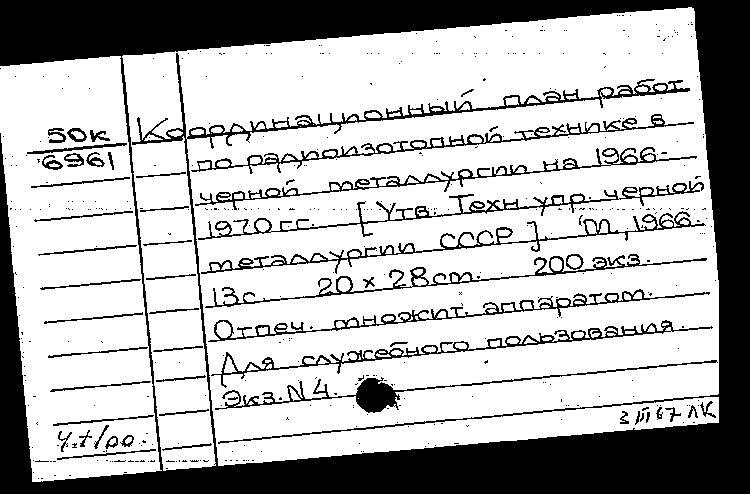 50к
6961
Координационный план работ
по радиоизотопной технике в
черной металлургии на 1966-
1970 г.г. [Утв. Техн. упр. черной
металлургии СССР]. М., 1966.
13 с. 20 x 28 см. 200 экз.
Отпеч. множит. аппаратом.
Для служебного пользования.
Экз. N 4.
3 III 67 ЛК